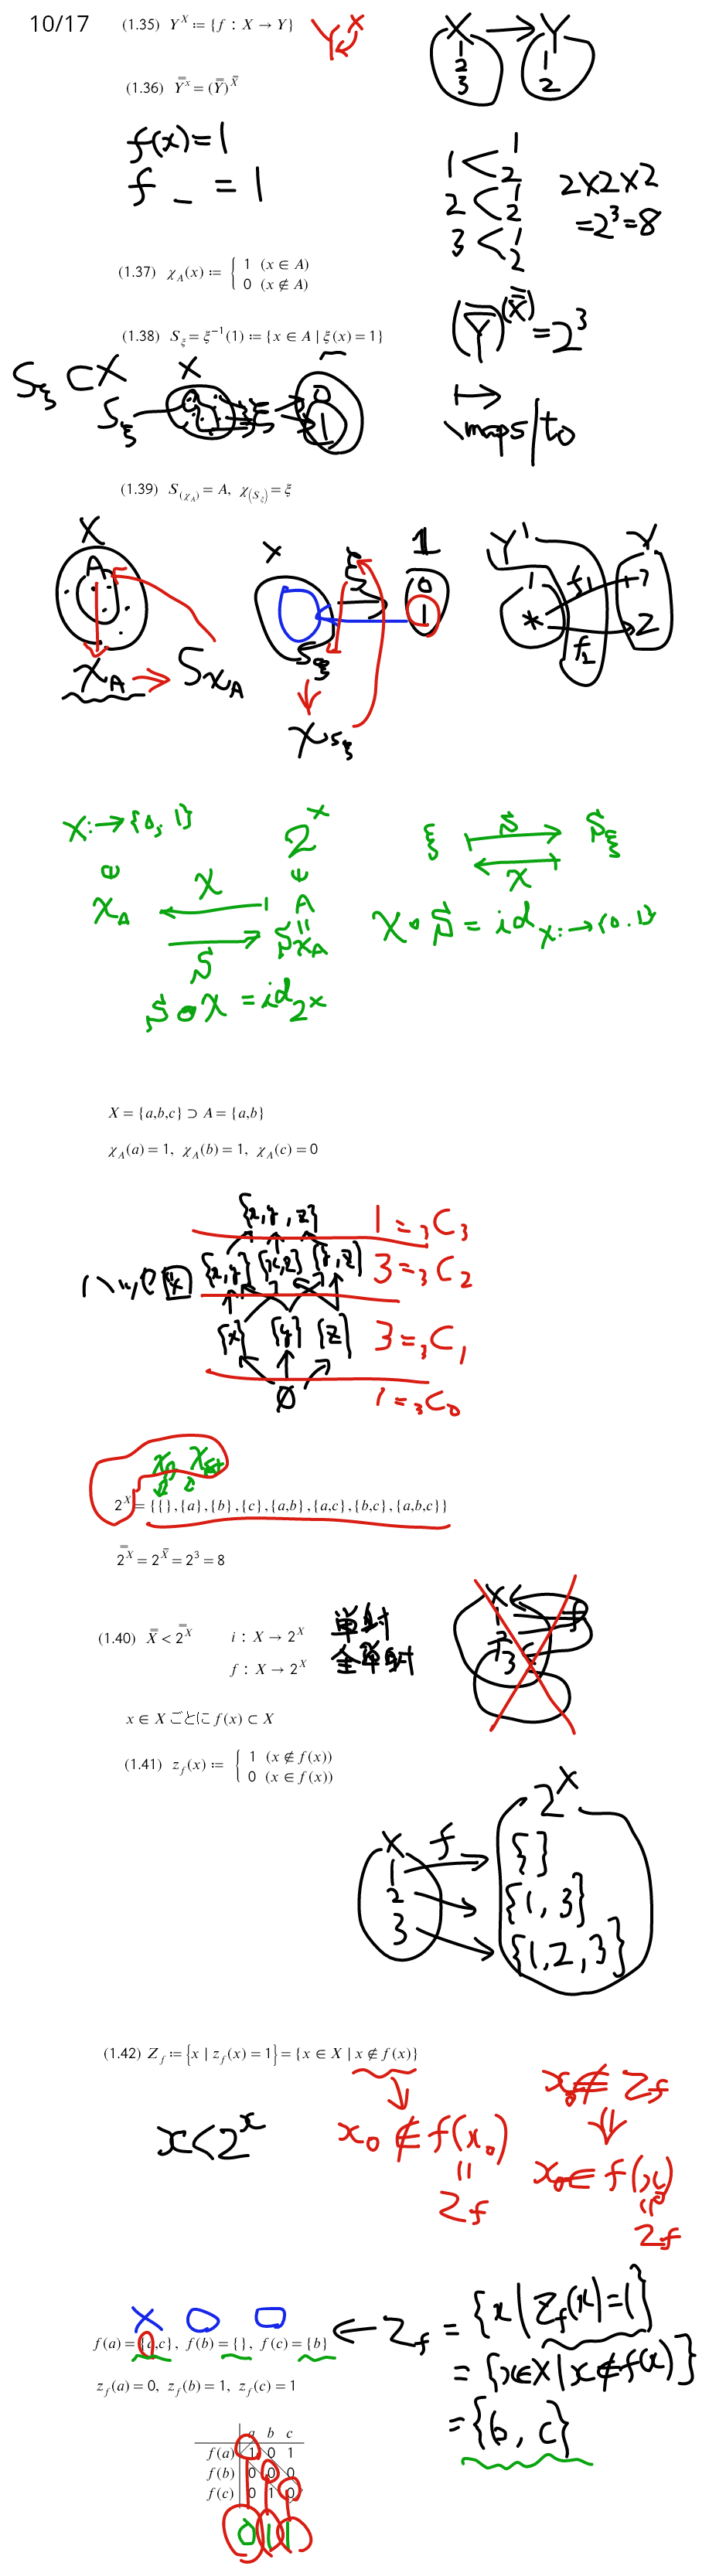 10/17
(1.35) Y^X ≔ {f : X → Y}
Y^X
X → Y
1 2 3
1 2
(1.36) \overline{\overline{Y^X}} = (\overline{\overline{Y}})^{\overline{\overline{X}}}
f(x)=1
f _ = 1
1 < 1 2
2 < 1 2
3 < 1 2
2×2×2
=2³=8
(1.37) χ_A(x) ≔ { 1 (x ∈ A)
0 (x ∉ A)
(\overline{\overline{Y}})^{(\overline{\overline{X}})} = 2³
(1.38) S_ξ = ξ⁻¹(1) ≔ {x ∈ A | ξ(x) = 1}
S_ξ ⊂ X
X
S_ξ
ξ
0
1
↦
\maps/to
(1.39) S_(χ_A) = A, χ_(S_ξ) = ξ
X
A
χ_A → S_{χ_A}
X
ξ
1
0
1
S_ξ
χ_{S_ξ}
Y¹
1
*
f₁
f₂
Y
1
2
X:→{0,1}
2^X
χ_A
χ
A
S
S_{χ_A}
S∘χ = id_{2^X}
ξ
S
S_ξ
χ
χ∘S = id_{X:→{0,1}}
X = {a,b,c} ⊃ A = {a,b}
χ_A(a) = 1, χ_A(b) = 1, χ_A(c) = 0
{x,y,z} 1 = ₃C₃
ハッセ図 {x,y} {x,z} {y,z} 3 = ₃C₂
{x} {y} {z} 3 = ₃C₁
∅ 1 = ₃C₀
2^X = {{ },{a},{b},{c},{a,b},{a,c},{b,c},{a,b,c}}
\overline{\overline{2^X}} = 2^{\overline{\overline{X}}} = 2³ = 8
(1.40) \overline{\overline{X}} < \overline{\overline{2^X}} i : X → 2^X 単射
f : X → 2^X 全単射
x ∈ X ごとに f(x) ⊂ X
(1.41) z_f(x) ≔ { 1 (x ∉ f(x))
0 (x ∈ f(x))
X f 2^X
1 { }
2 {1,3}
3 {1,2,3}
(1.42) Z_f ≔ {x | z_f(x) = 1} = {x ∈ X | x ∉ f(x)}
x < 2^x
x₀ ∉ f(x₀)
=
Z_f
x₀ ∉ Z_f
⇓
x₀ ∈ f(x₀)
=
Z_f
× ○ ○
f(a) = {a,c}, f(b) = { }, f(c) = {b}
← Z_f = {x | Z_f(x)=1}
= {x∈X | x∉f(x)}
= {b, c}
z_f(a) = 0, z_f(b) = 1, z_f(c) = 1
a b c
f(a) 1 0 1
f(b) 0 0 0
f(c) 0 1 0
0 1 1